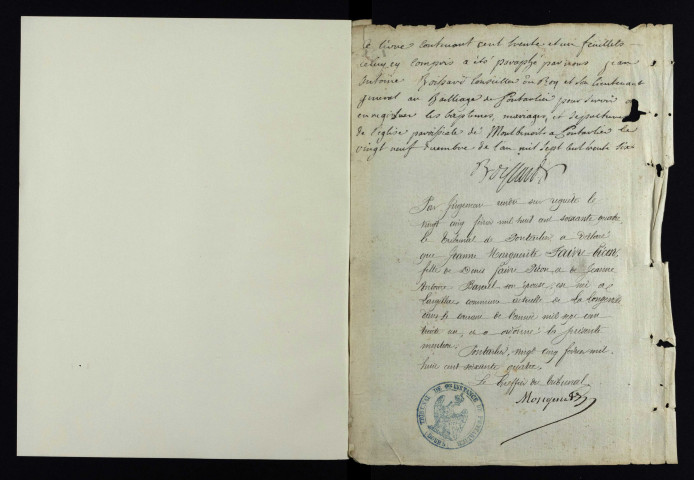 Ce livre contenant cent trente et un feuillets
celui cy compris a été paraphé par nous Jean
Antoine Boissard Conseiller du Roy et Son Lieutenant
general au Bailliage de Pontarlier pour servir a
enregistrer les baptemes, mariages, et sepultures
de l'eglise paroissiale de Montbenoit a Pontarlier le
vingt neuf decembre de l'an mil sept cent trente six
Boissard
Par Jugement rendu sur requete le
vingt cinq février mil huit cent soixante quatre,
le tribunal de Pontarlier a déclaré
que Jeanne Marguerite Faivre
fille de Denis Faivre et de Jeanne
Antoine son épouse, est née à
Largillat commune actuelle de La Longeville
dans le courant de l'année mil sept cent
et a ordonné la présente
mention. Pontarlier, vingt cinq février mil
huit cent soixante quatre.
Le Greffier du tribunal
TRIBUNAL DE 1RE INSTANCE DE PONTARLIER
(DOUBS)